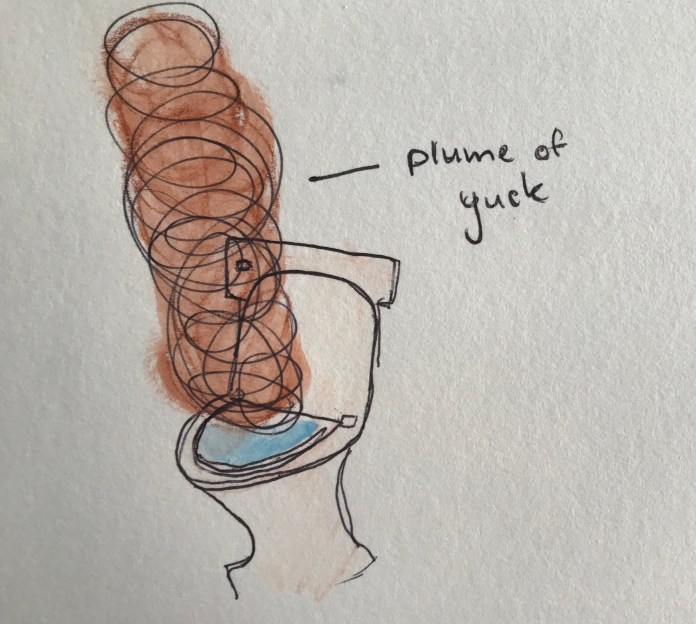 plume of
yuck